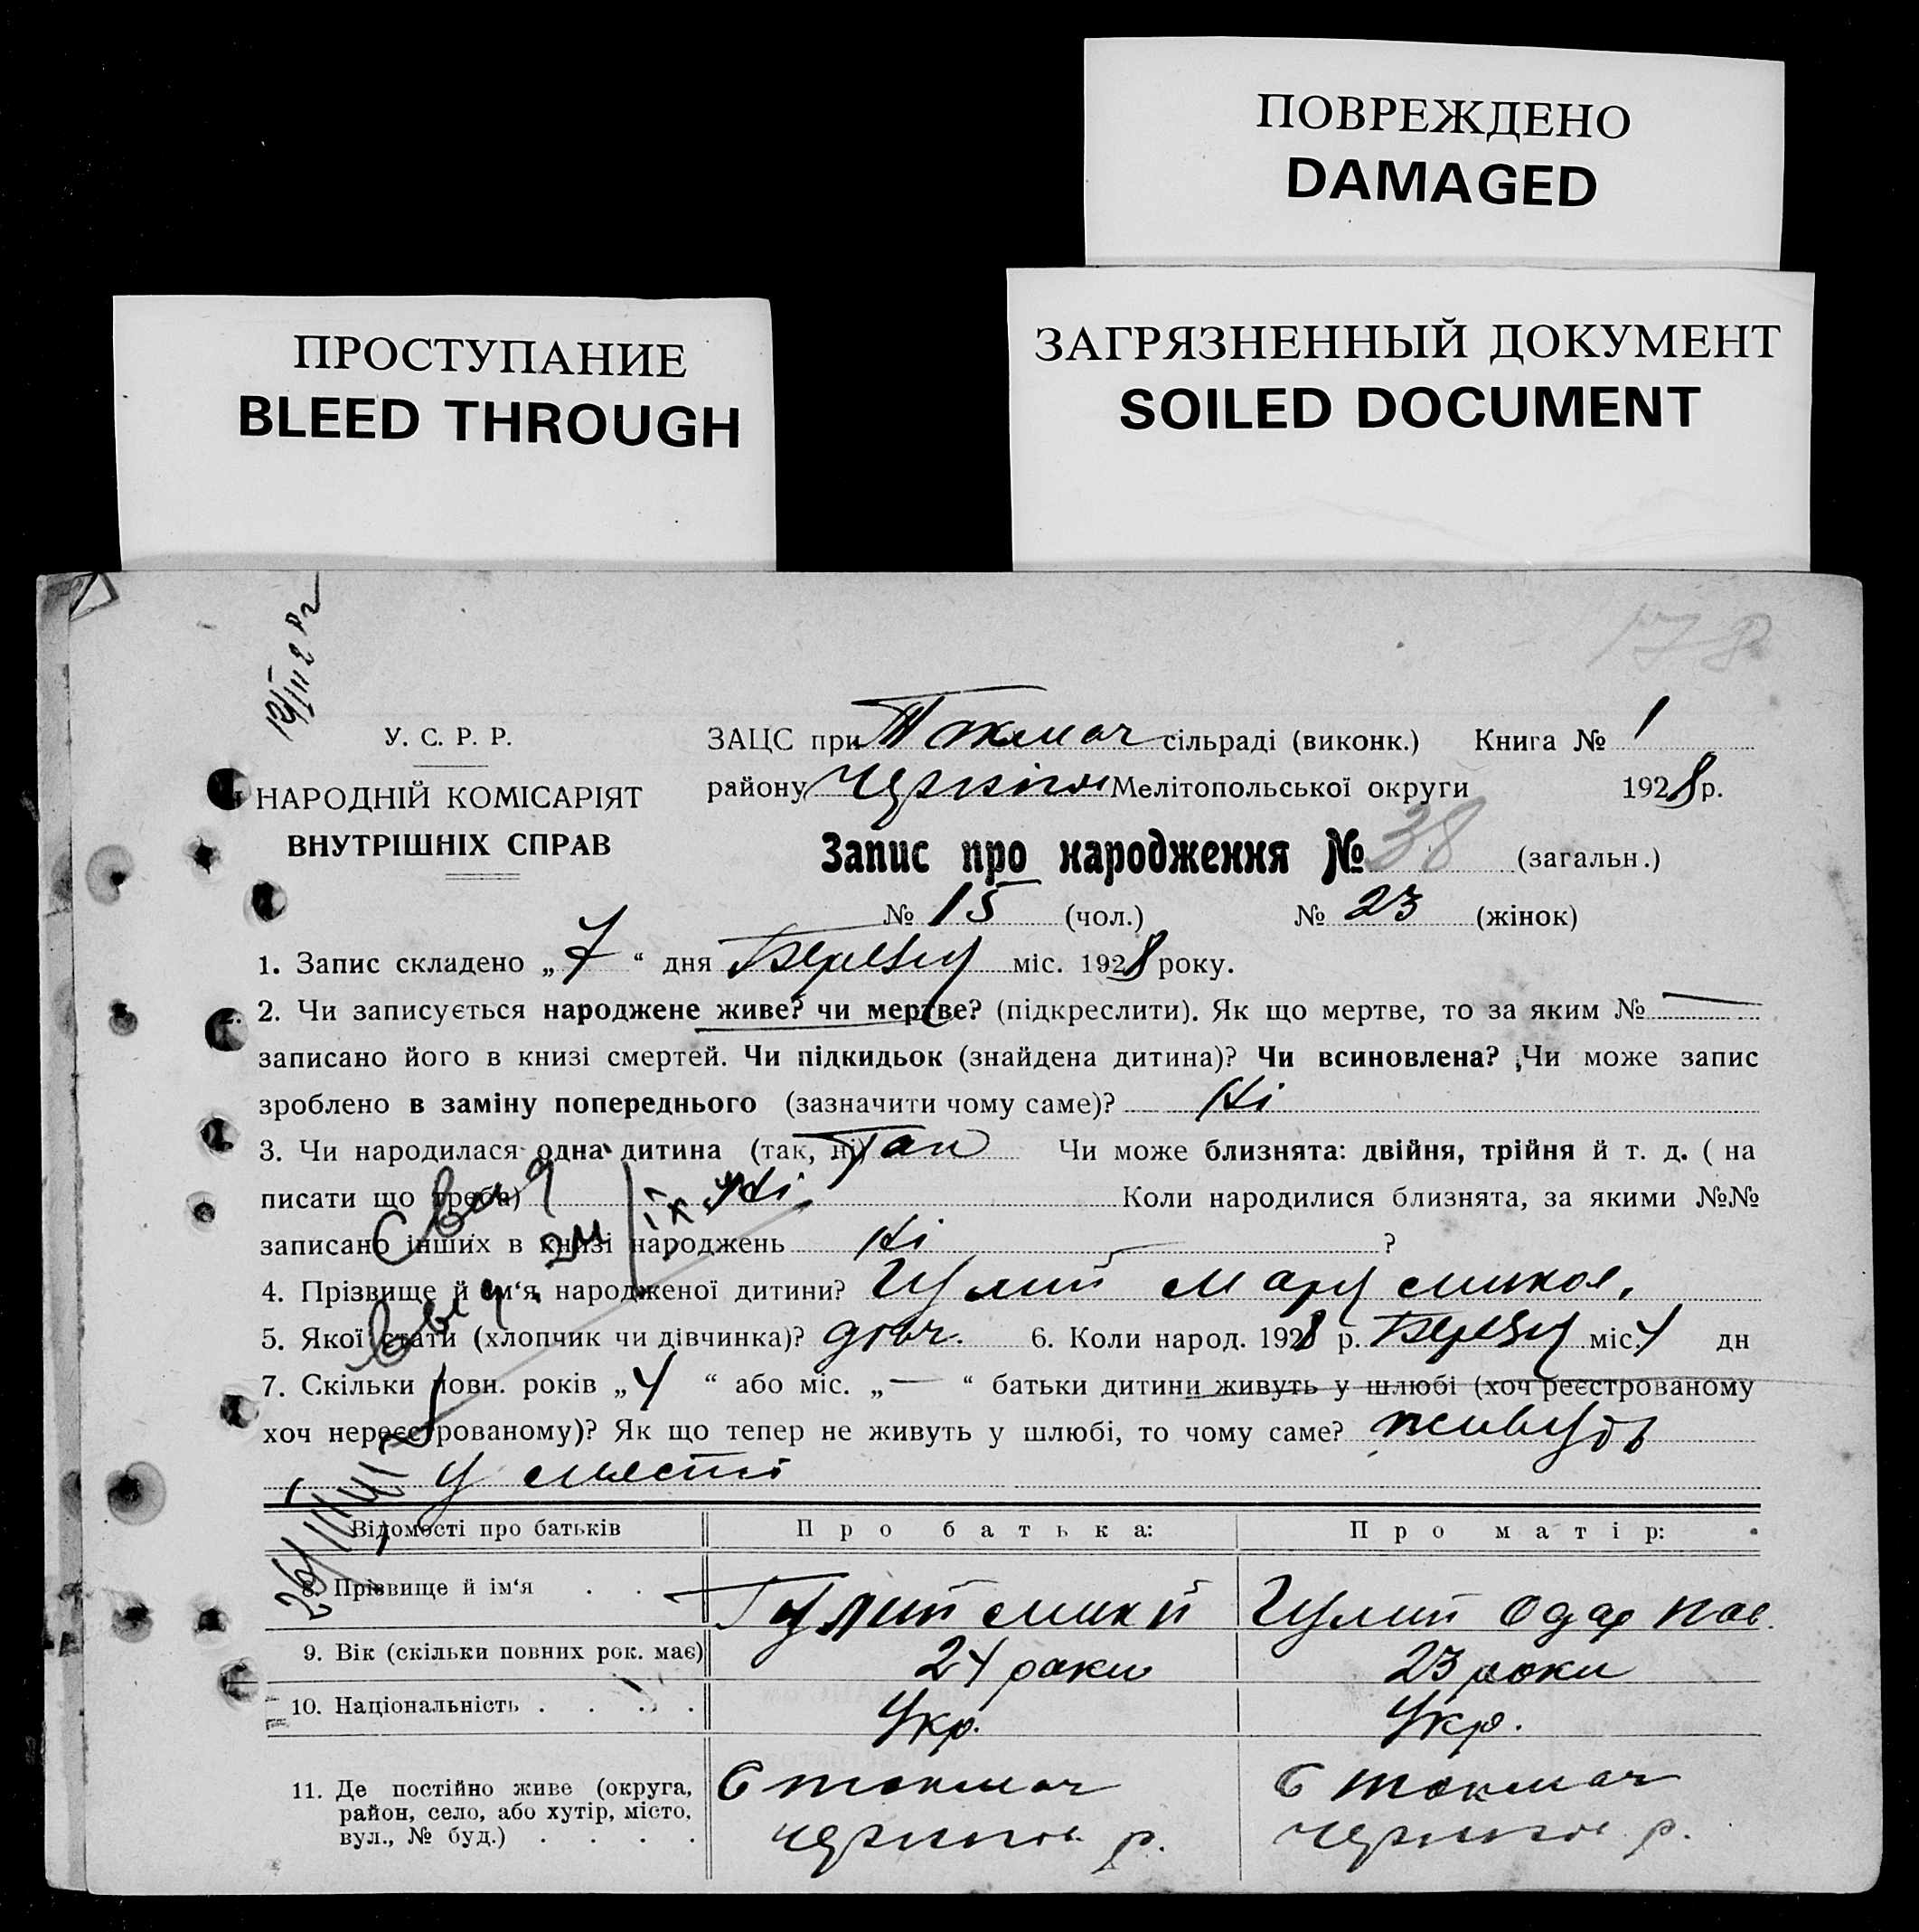 ПОВРЕЖДЕНО
DAMAGED
ПРОСТУПАНИЕ
BLEED THROUGH
ЗАГРЯЗНЕННЫЙ ДОКУМЕНТ
SOILED DOCUMENT
178
У. С. Р. Р.
НАРОДНІЙ КОМІСАРІЯТ
ВНУТРІШНІХ СПРАВ
ЗАЦС при Токмач сільраді (виконк.) Книга № 1
району Чернігов Мелітопольської округи 1928 р.
Запис про народження № 38 (загальн.)
№ 15 (чол.) № 23 (жінок)
1. Запис складено „ 7 “ дня Березня міс. 1928 року.
2. Чи записується народжене живе? чи мертве? (підкреслити). Як що мертве, то за яким № —
записано його в книзі смертей. Чи підкидьок (знайдена дитина)? Чи всиновлена? Чи може запис
зроблено в заміну попереднього (зазначити чому саме)? Ні
3. Чи народилася одна дитина (так, ні) Так Чи може близнята: двійня, трійня й т. д. ( на
писати що треба) Ні Коли народилися близнята, за якими №№
записано інших в книзі народжень Ні ?
4. Прізвище й ім‘я народженої дитини? Гулий Мару Микол.
5. Якої стати (хлопчик чи дівчинка)? дівч. 6. Коли народ. 1928 р. Березня міс. 4 дн
7. Скільки повн. років „ 4 “ або міс. „ — “ батьки дитини живуть у шлюбі (хоч реєстрованому
хоч нереєстрованому)? Як що тепер не живуть у шлюбі, то чому саме? живудь
у мєсті
Відомості про батьків Про батька: Про матір:
8. Прізвище й ім‘я . . Гулий Мики Гулий Одар Пав.
9. Вік (скільки повних рок. має) 24 роки 23 роки
10. Національність . . . . Укр. Укр.
11. Де постійно живе (округа,
район, село, або хутір, місто,
вул., № буд.) . . . .
С Токмач С Токмач
Чернигов. р. Чернигов р.